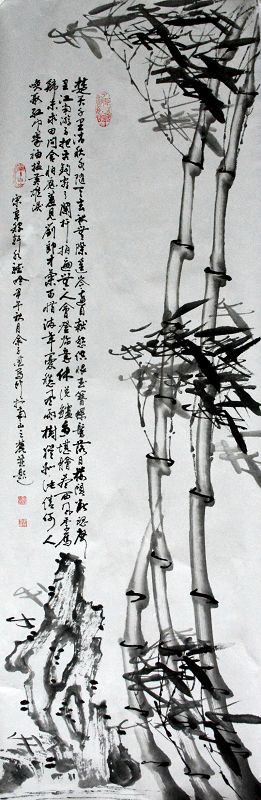 楚天千里清秋水隨天去秋無際遥岑遠目獻愁供恨玉簪螺髻落日樓頭斷鴻聲
里江南游子把吴鈎看了闌干拍遍無人會登臨意休說鱸魚堪膾盡西風季鷹
歸未求田問舍怕應羞見劉郎才氣可惜流年憂愁風雨樹猶如此倩何人
唤取紅巾翠袖揾英雄淚
宋辛稼軒水龍吟甲午秋月南山之麓并題